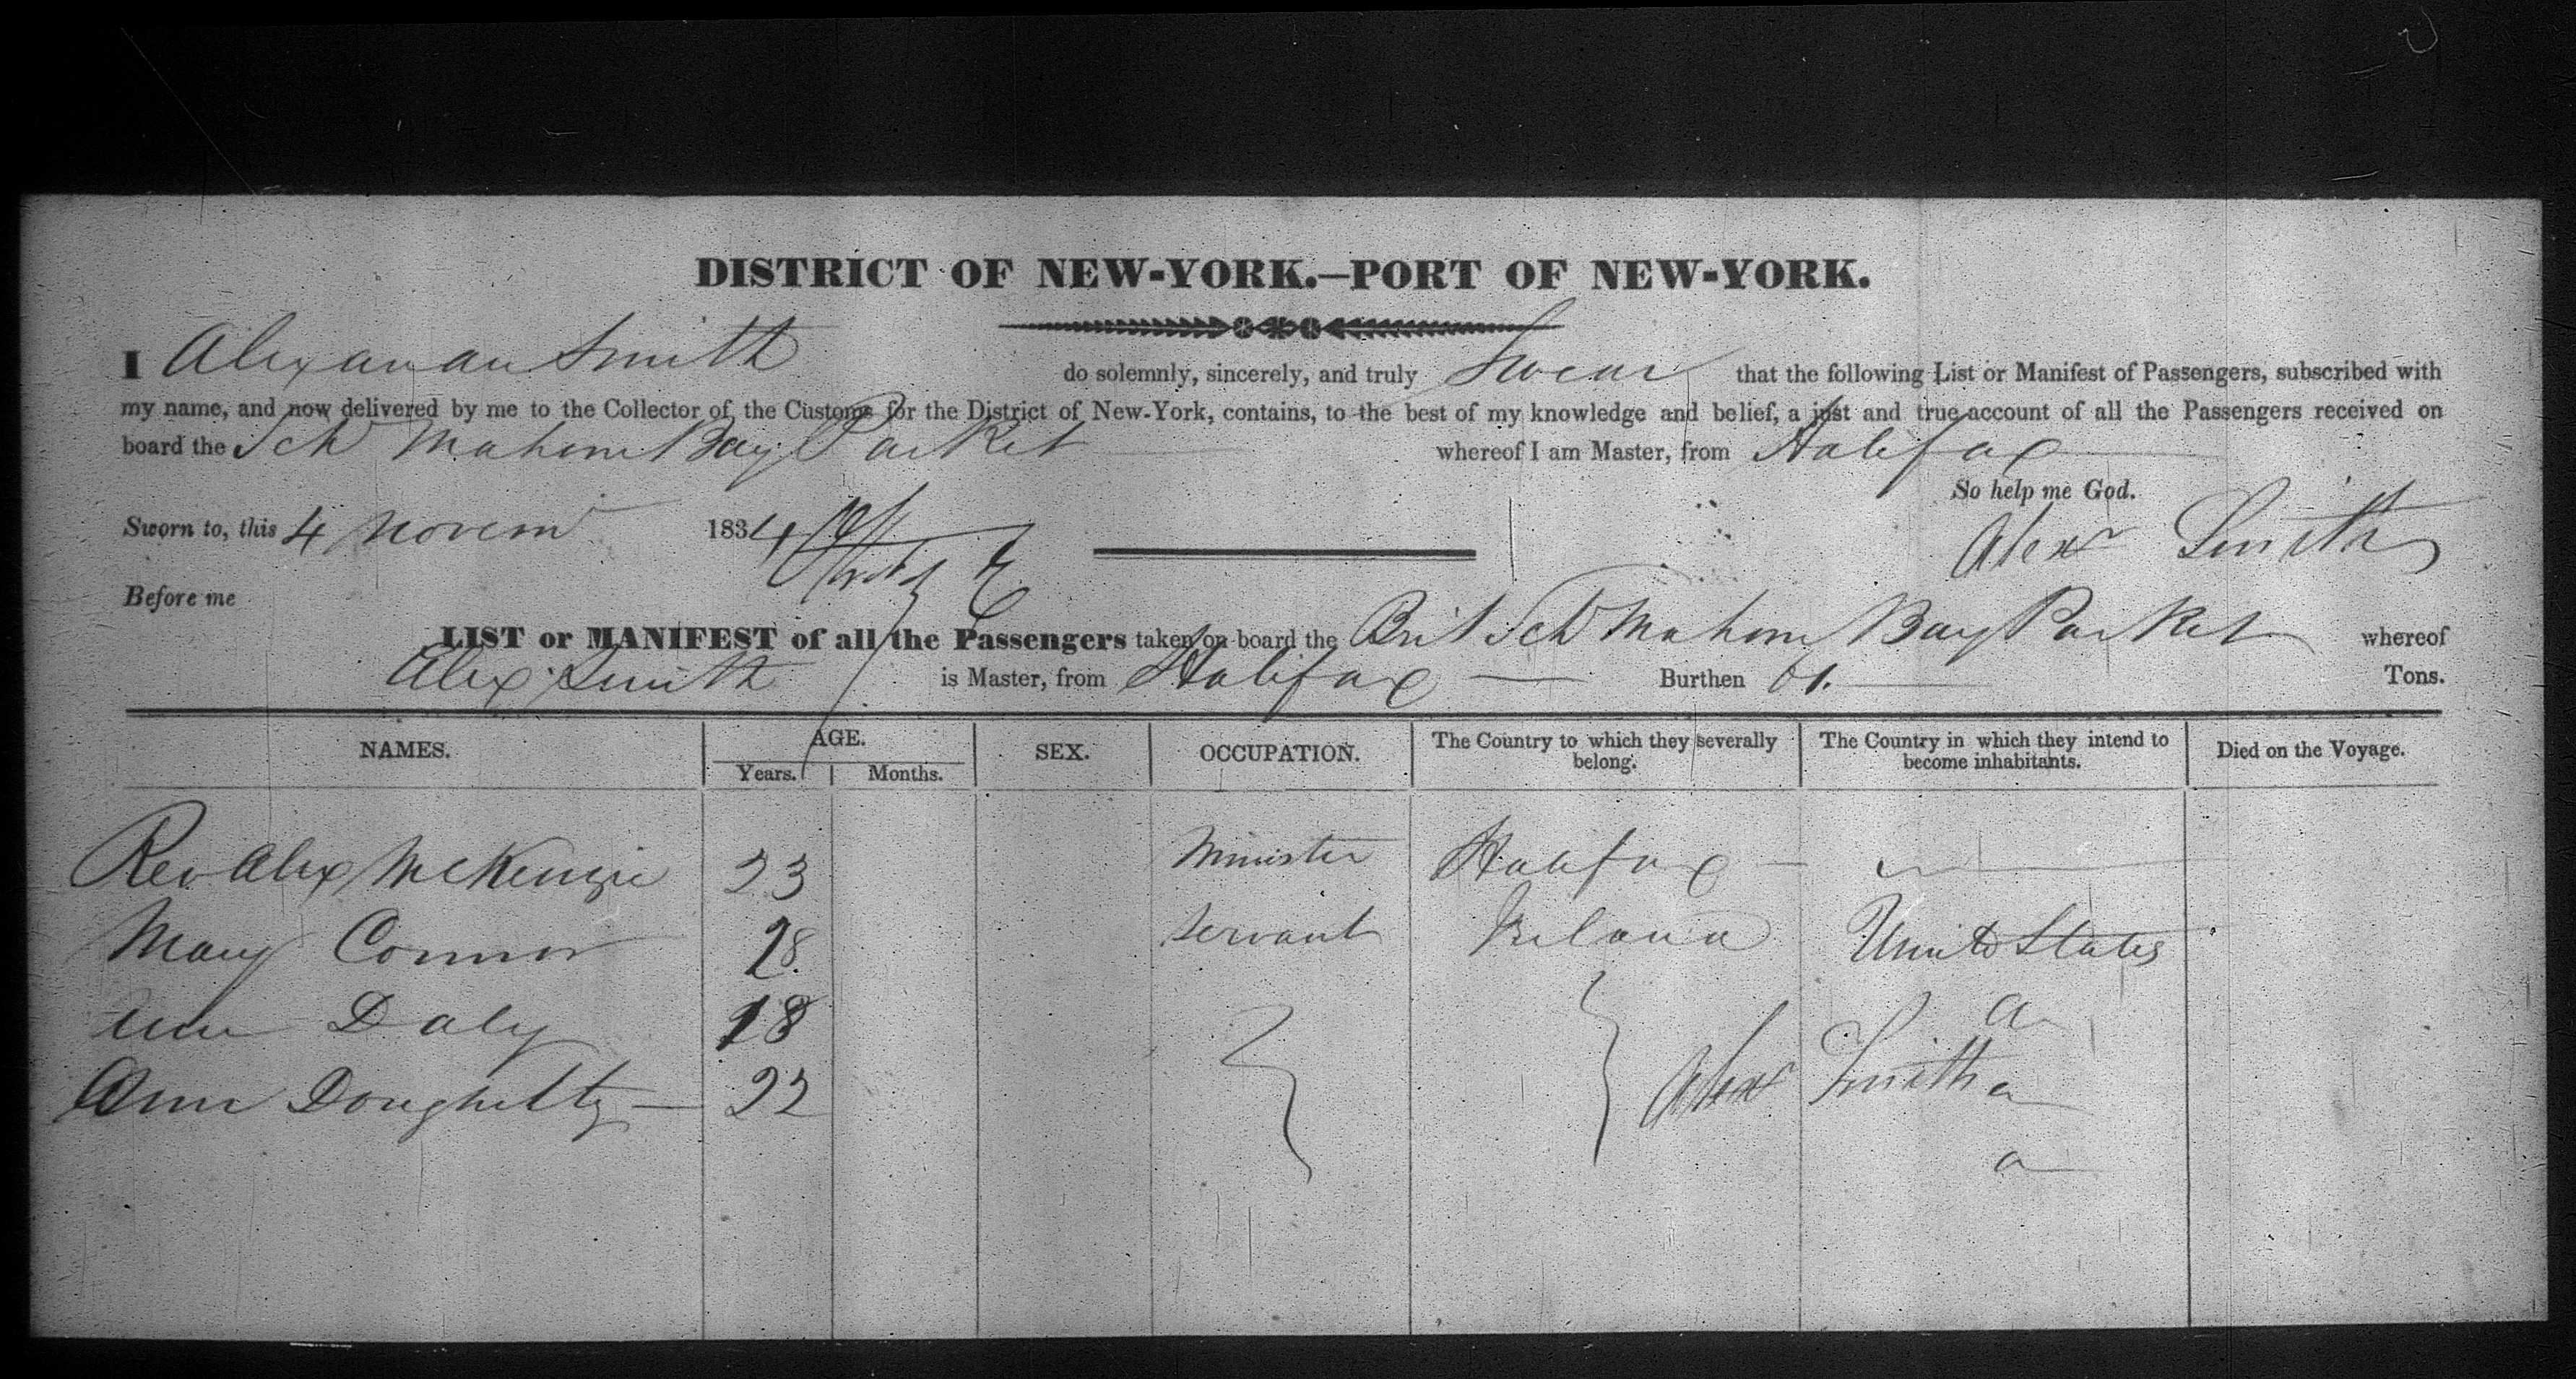 DISTRICT OF NEW-YORK.—PORT OF NEW-YORK.
I Alexander Smith do solemnly, sincerely, and truly Swear that the following List or Manifest of Passengers, subscribed with
my name, and now delivered by me to the Collector of the Customs for the District of New-York, contains, to the best of my knowledge and belief, a just and true account of all the Passengers received on
board the Schr Mahone Bay Packet whereof I am Master, from Halifax
So help me God.
Sworn to, this 4 Novemr 1834 Alexr Smith
Before me
LIST or MANIFEST of all the Passengers taken on board the Brit Schr Mahone Bay Packet whereof
Alex Smith is Master, from Halifax Burthen 61. Tons.
NAMES. AGE. SEX. OCCUPATION. The Country to which they severally belong. The Country in which they intend to become inhabitants. Died on the Voyage.
Years. Months.
Rev Alex McKenzie 23 Minister Halifax
Mary Connor 28 Servant Ireland United States
Ann Daly 18
Ann Doughetty 22 Alexr Smith